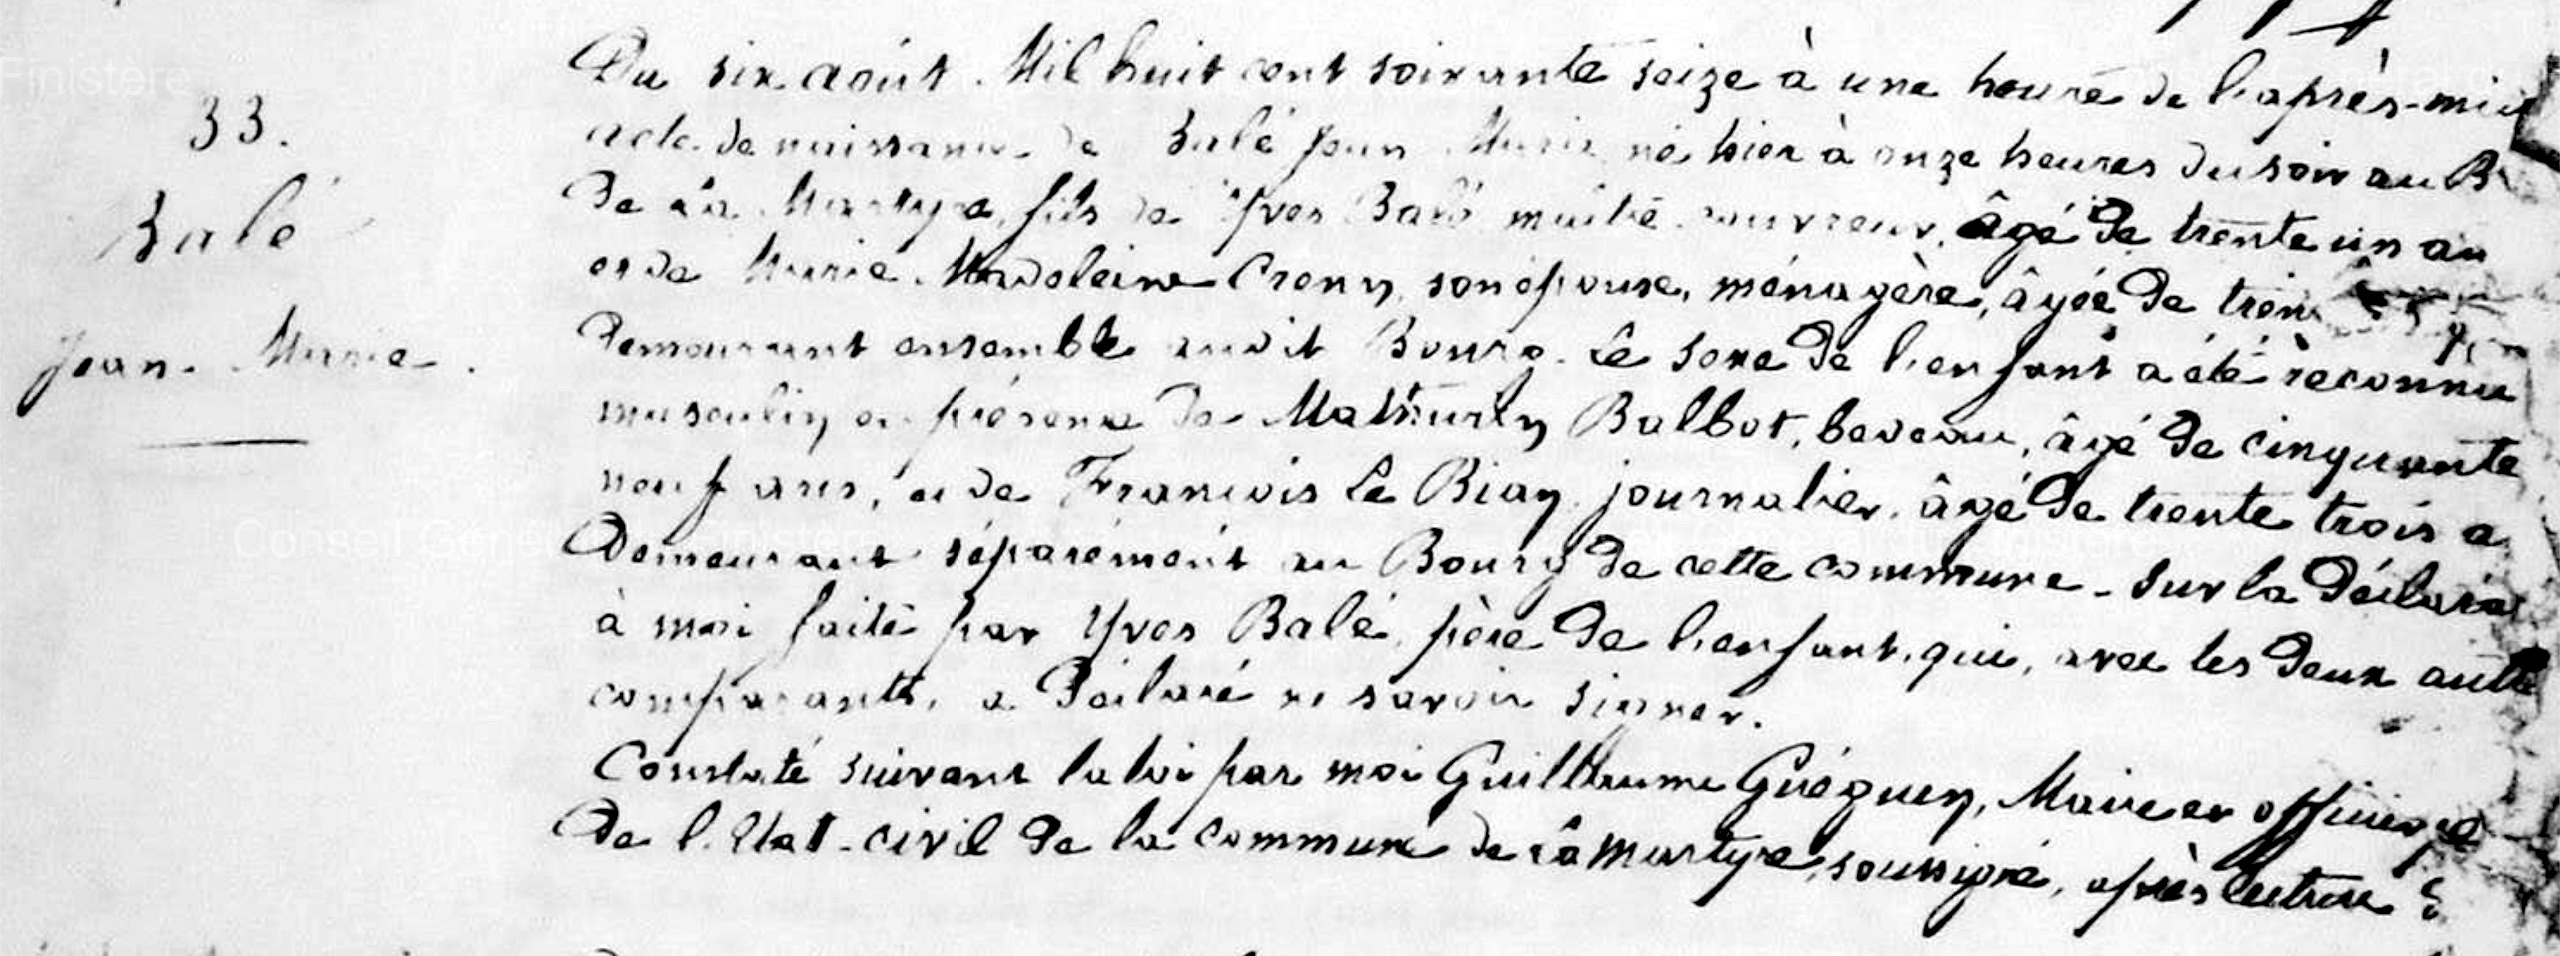 33.
Balé
Jean Marie.
Du six août Mil huit cent soixante seize à une heure de l'après-midi
acte de naissance de Balé Jean Marie né hier à onze heures du soir au B
de La Martyre, fils de Yves Balé maître couvreur, âgé de trente un an
et de Marie Madeleine Crenn, son épouse, ménagère, âgée de tren
demeurant ensemble audit Bourg. Le sexe de l'enfant a été reconnu
masculin en présence de Mathurin Balbot, bedeau, âgé de cinquante
neuf ans, et de François Le Bian, journalier, âgé de trente trois a
Demeurant séparément au Bourg de cette commune - Sur la Déclara
à moi faite par Yves Balé, père de l'enfant, qui, avec les deux autre
comparants, a Déclaré ne savoir signer.
Constaté suivant la loi par moi Guillaume Guéguen, Maire et officier
De l'Etat-civil de la commune de La Martyre, soussigné, après lecture
Finistère
Conseil Général Finistère